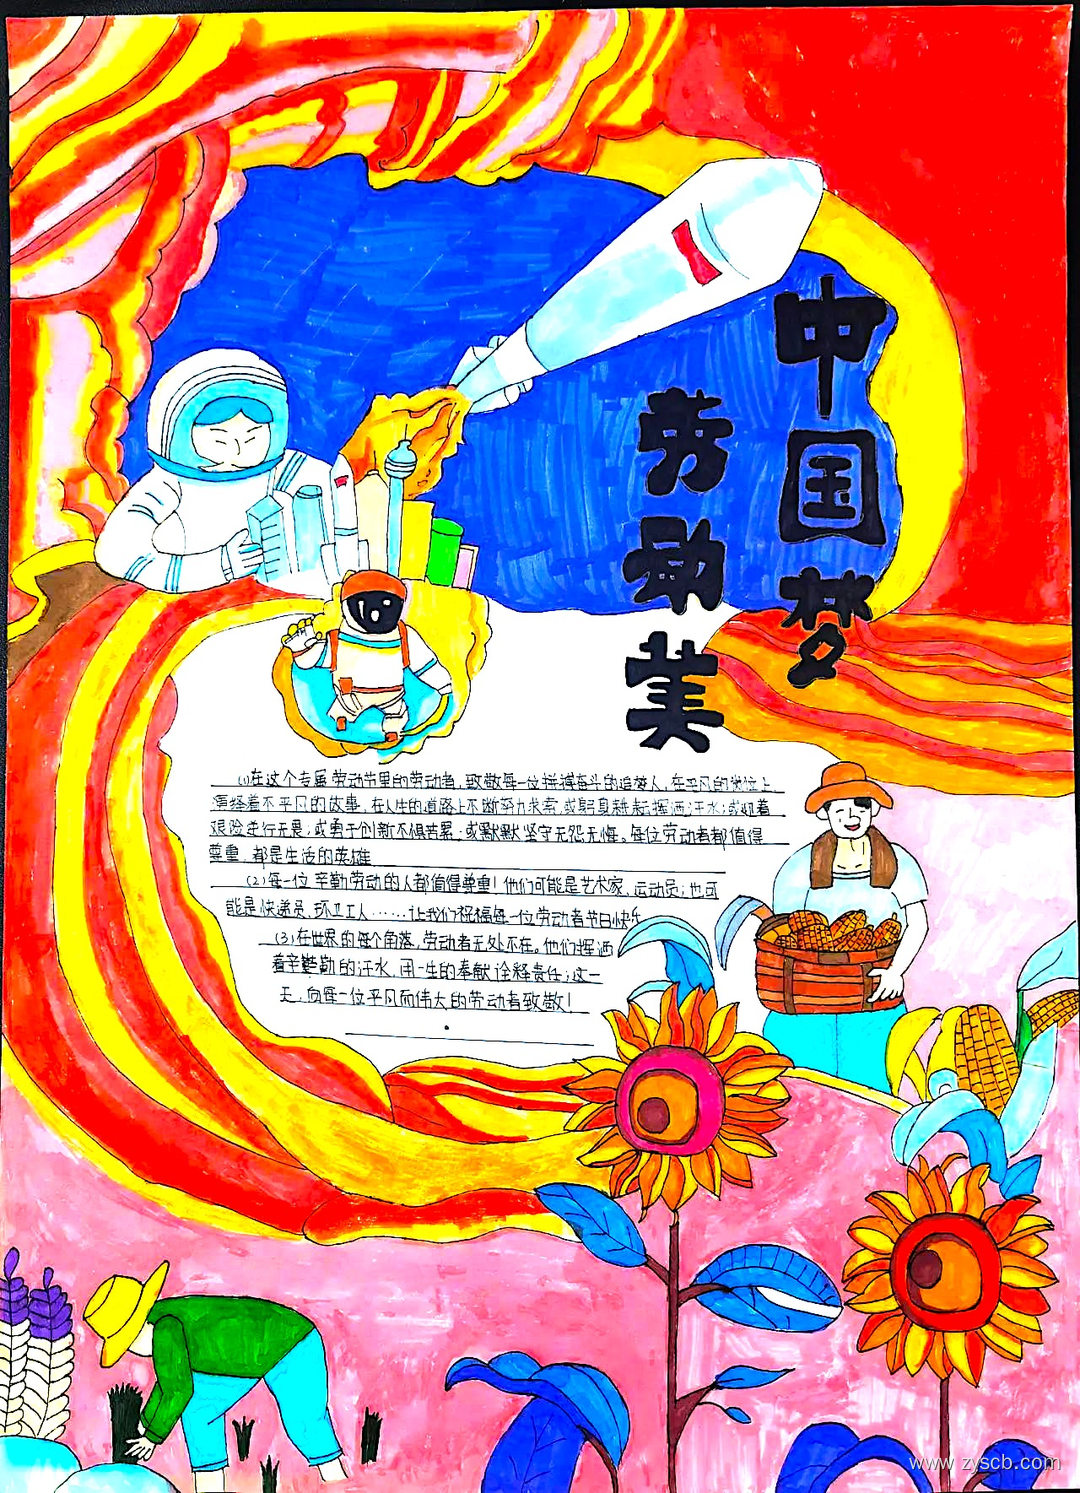 中国梦
劳动美
(1)在这个专属劳动节里的劳动者,致敬每一位拼搏奋斗的追梦人,在平凡的岗位上
演绎着不平凡的故事,在人生的道路上不断努力求索,或躬身耕耘挥洒汗水;或迎着
艰险逆行无畏;或勇于创新不惧苦累;或默默坚守无怨无悔。每位劳动者都值得
尊重,都是生活的英雄
(2)每一位辛勤劳动的人都值得尊重!他们可能是艺术家、运动员;也可
能是快递员,环卫工人……让我们祝福每一位劳动者节日快乐
(3)在世界的每个角落,劳动者无处不在。他们挥洒
着辛勤的汗水,用一生的奉献诠释责任;这一
天,向每一位平凡而伟大的劳动者致敬!
www.zyscb.com